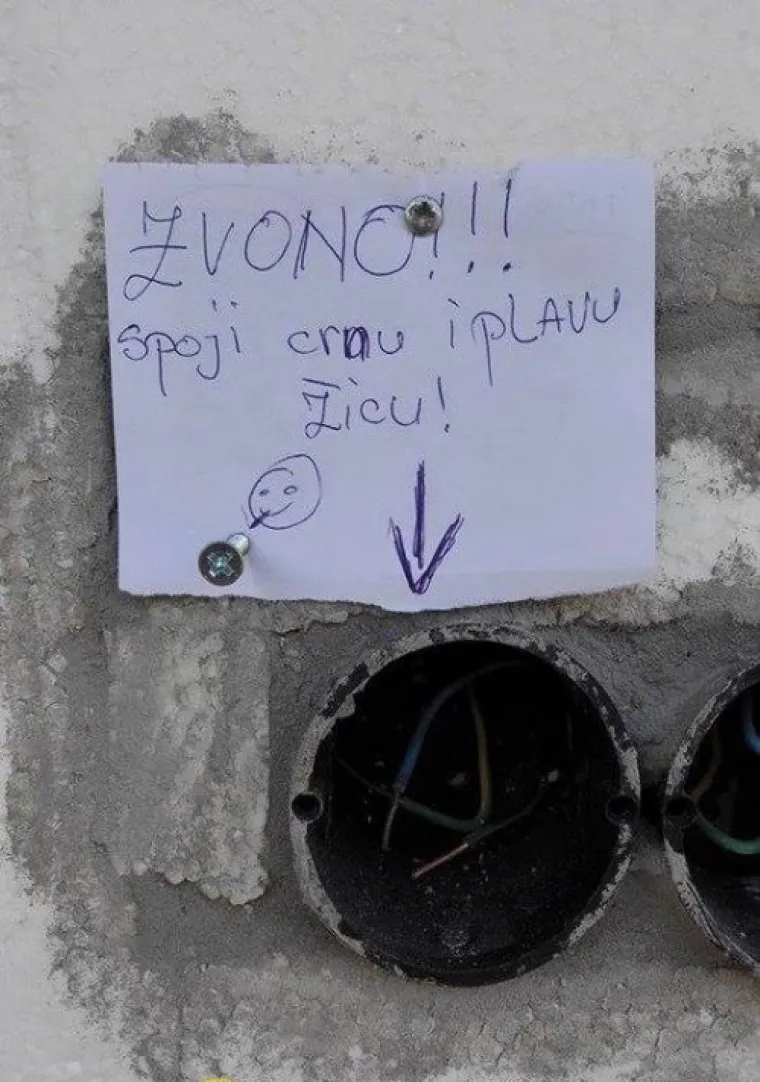 ZVONO!!!
spoji crnu i pLAVU
žicu!